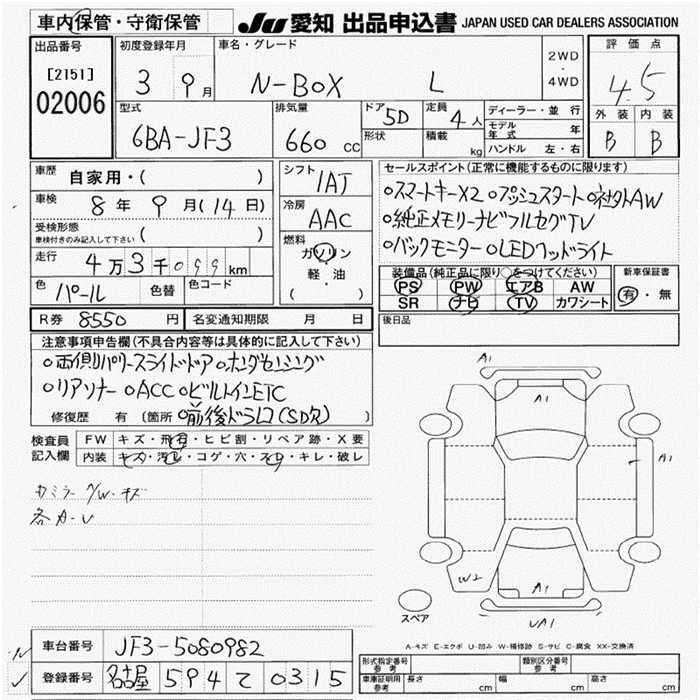 車内保管・守衛保管
JU 愛知 出品申込書 JAPAN USED CAR DEALERS ASSOCIATION
出品番号
[2151]
02006
初度登録年月
3 9月
車名・グレード
N-BOX L
2WD
・
4WD
評価点
4.5
外装 内装
B B
型式
6BA-JF3
排気量
660 CC
ドア 5D
形状
定員 4人
積載 kg
ディーラー・並行
モデル年式 年
ハンドル 左・右
車歴 自家用・( )
車検 8年9月(14日)
受検形態
車検付きのみ記入して下さい ( )
走行 4万3千099km
色 パール 色替 色コード
シフト 1AT
冷房 AAC
燃料
ガソリン
軽・油
( )
セールスポイント(正常に機能するものに限ります)
○スマートキーX2 ○プッシュスタート ○社外AW
○純正メモリーナビフルセグTV
○バックモニター ○LEDヘッドライト
装備品(純正品に限り○をつけてください)
PS PW エアB AW
SR ナビ TV カワシート
新車保証書
有・無
R券 8550円 名変通知期限 月 日
後日品
注意事項申告欄(不具合内容等は具体的に記入して下さい)
○両側パワースライドドア ○ホンダセンシング
○リアソナー ○ACC ○ビルトインETC
修復歴 有 (箇所 ○前後ドラレコ(SD欠)
検査員記入欄
FW キズ・飛石・ヒビ割・リペア跡・X要
内装 キズ・汚レ・コゲ・穴・スレ・キレ・破レ
カミラー P/W・キズ
各A-U
A1
A1
A1
W2
A1
UA1
スペア
A-キズ E-エクボ U-凹み W-補修跡 S-サビ C-腐食 XX-交換済
車台番号 JF3-5080982
登録番号 名古屋 594 て 0315
形式指定番号 参考
類別区分番号 参考
車庫証明用 参考 長さ cm 幅 cm 高さ cm